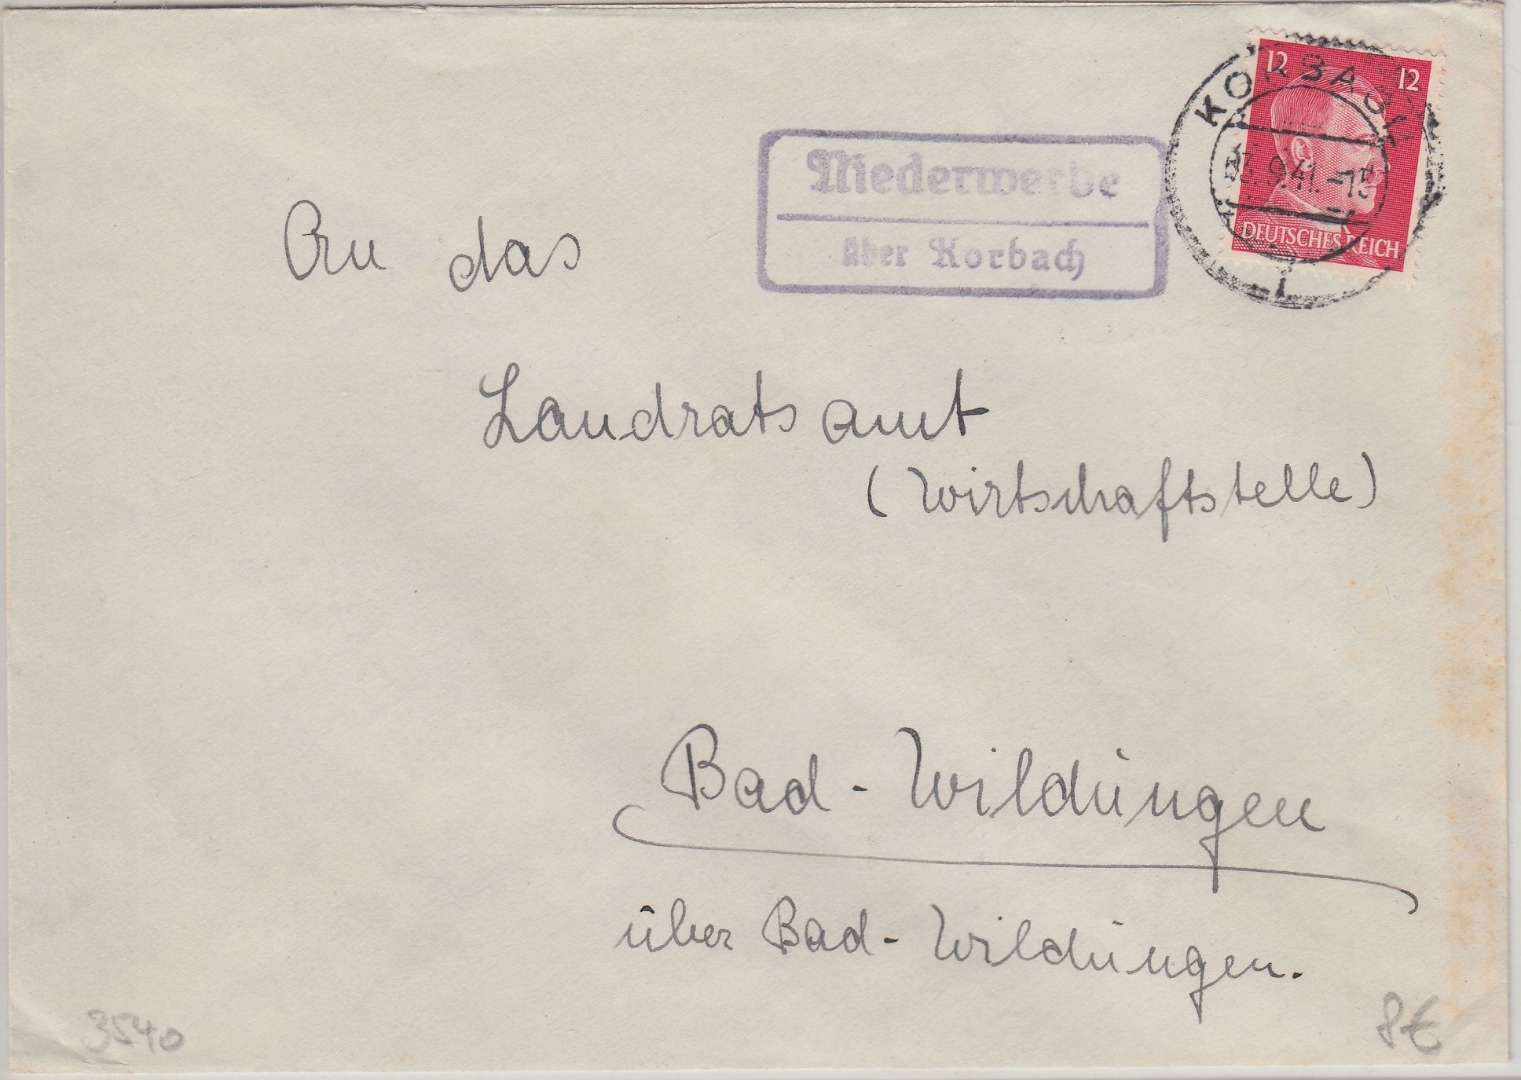 12 12
KORBACH
3.9.41.-15
DEUTSCHES REICH
1
Niederwerbe
über Korbach
An das
Landratsamt
(Wirtschaftstelle)
Bad-Wildungen
über Bad-Wildungen.
3540
8€